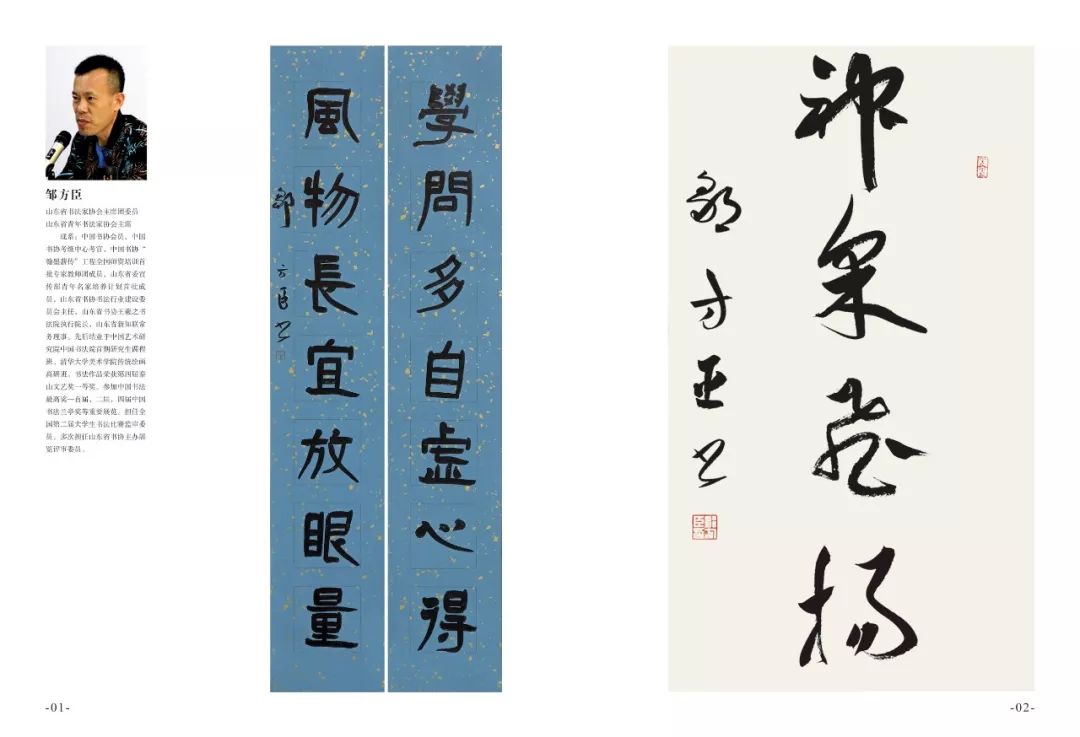 邹方臣
山东省书法家协会主席团委员
山东省青年书法家协会主席
现系：中国书协会员，中国
书协考级中心考官，中国书协“
翰墨薪传”工程全国师资培训首
批专家教师团成员，山东省委宣
传部青年名家培养计划首批成
员，山东省书协书法行业建设委
员会主任，山东省书协王羲之书
法院执行院长，山东省新知联常
务理事。先后结业于中国艺术研
究院中国书法院首期研究生课程
班、清华大学美术学院传统绘画
高研班。书法作品荣获第四届泰
山文艺奖一等奖。参加中国书法
最高奖—首届、二届、四届中国
书法兰亭奖等重要展览。担任全
国第二届大学生书法比赛监审委
员，多次担任山东省书协主办展
览评审委员。
學問多自虚心得
風物長宜放眼量
邹方臣书
神采飞扬
邹方臣书
-01-
-02-